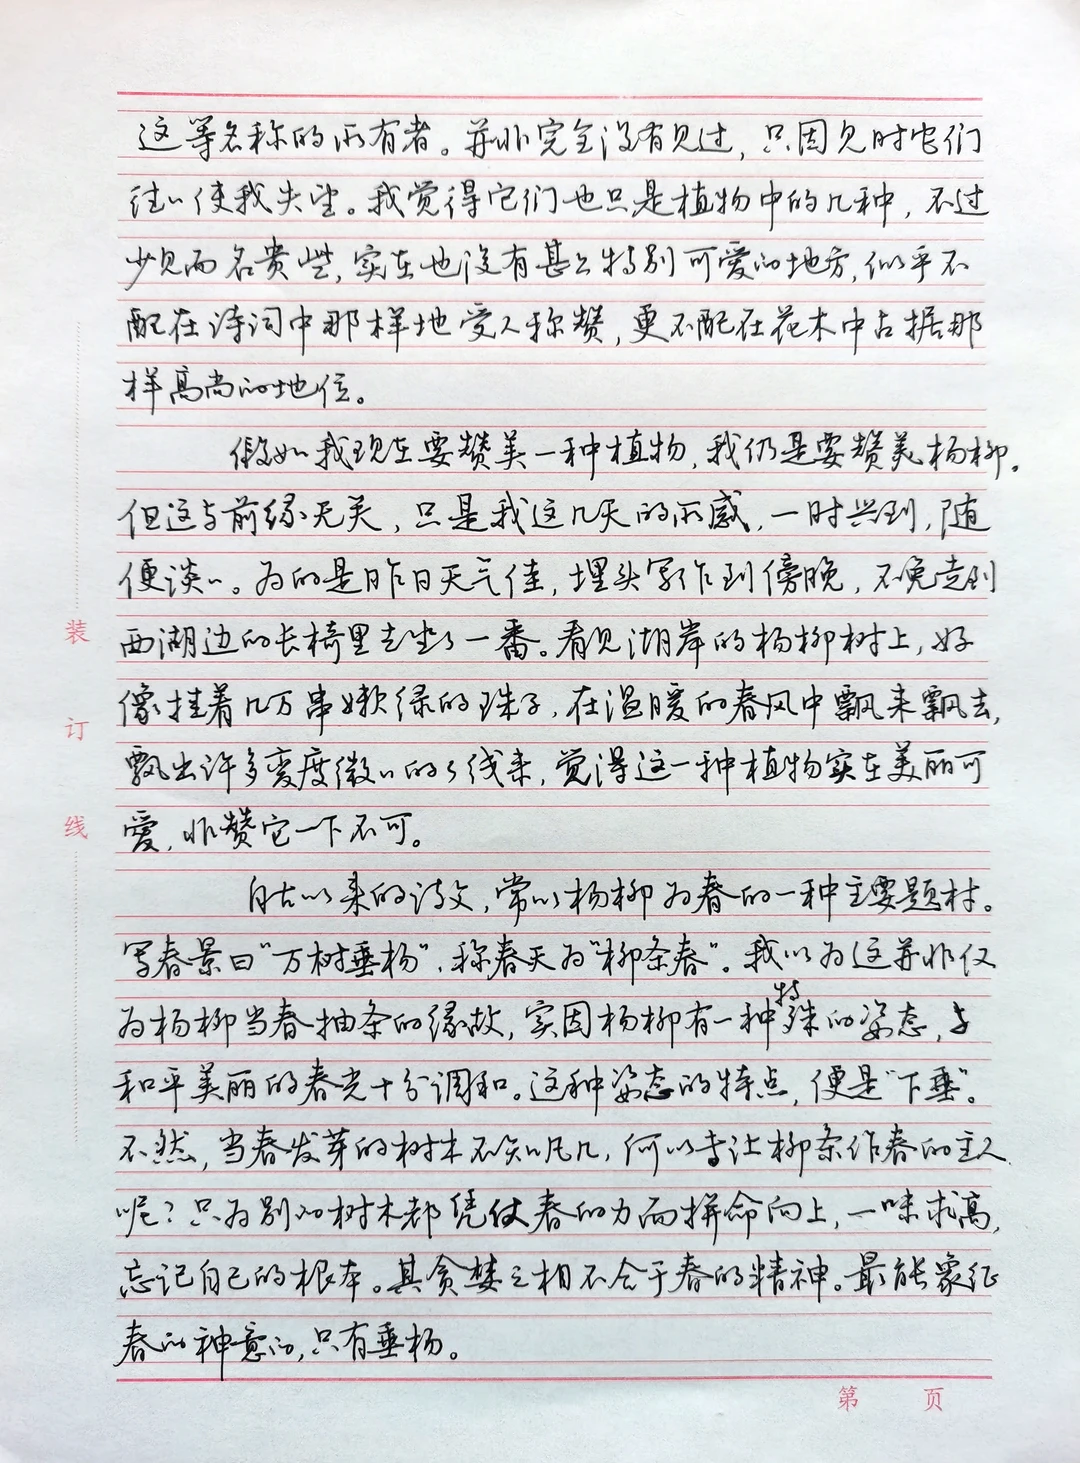 这等名称的所有者。并非完全没有见过，只因见时它们
往往使我失望。我觉得它们也只是植物中的几种，不过
少见而名贵些，实在也没有甚么特别可爱的地方，似乎不
配在诗词中那样地受人称赞，更不配在花木中占据那
样高尚的地位。
假如我现在要赞美一种植物，我仍是要赞美杨柳。
但这与前缘无关，只是我这几天的所感，一时兴到，随
便谈谈。为的是昨日天气佳，埋头写作到傍晚，不免走到
西湖边的长椅里去坐了一番。看见湖岸的杨柳树上，好
像挂着几万串嫩绿的珠子，在温暖的春风中飘来飘去，
飘出许多变度微微的S线来，觉得这一种植物实在美丽可
爱，非赞它一下不可。
自古以来的诗文，常以杨柳为春的一种主要题材。
写春景曰“万树垂杨”，称春天为“柳条春”。我以为这并非仅
为杨柳当春抽条的缘故，实因杨柳有一种特殊的姿态，与
和平美丽的春光十分调和。这种姿态的特点，便是“下垂”。
不然，当春发芽的树木不知凡几，何以专让柳条作春的主人
呢？只为别的树木都凭仗春的力而拼命向上，一味求高，
忘记自己的根本。其贪婪之相不合于春的精神。最能象征
春的神意的，只有垂杨。
装
订
线
第 页